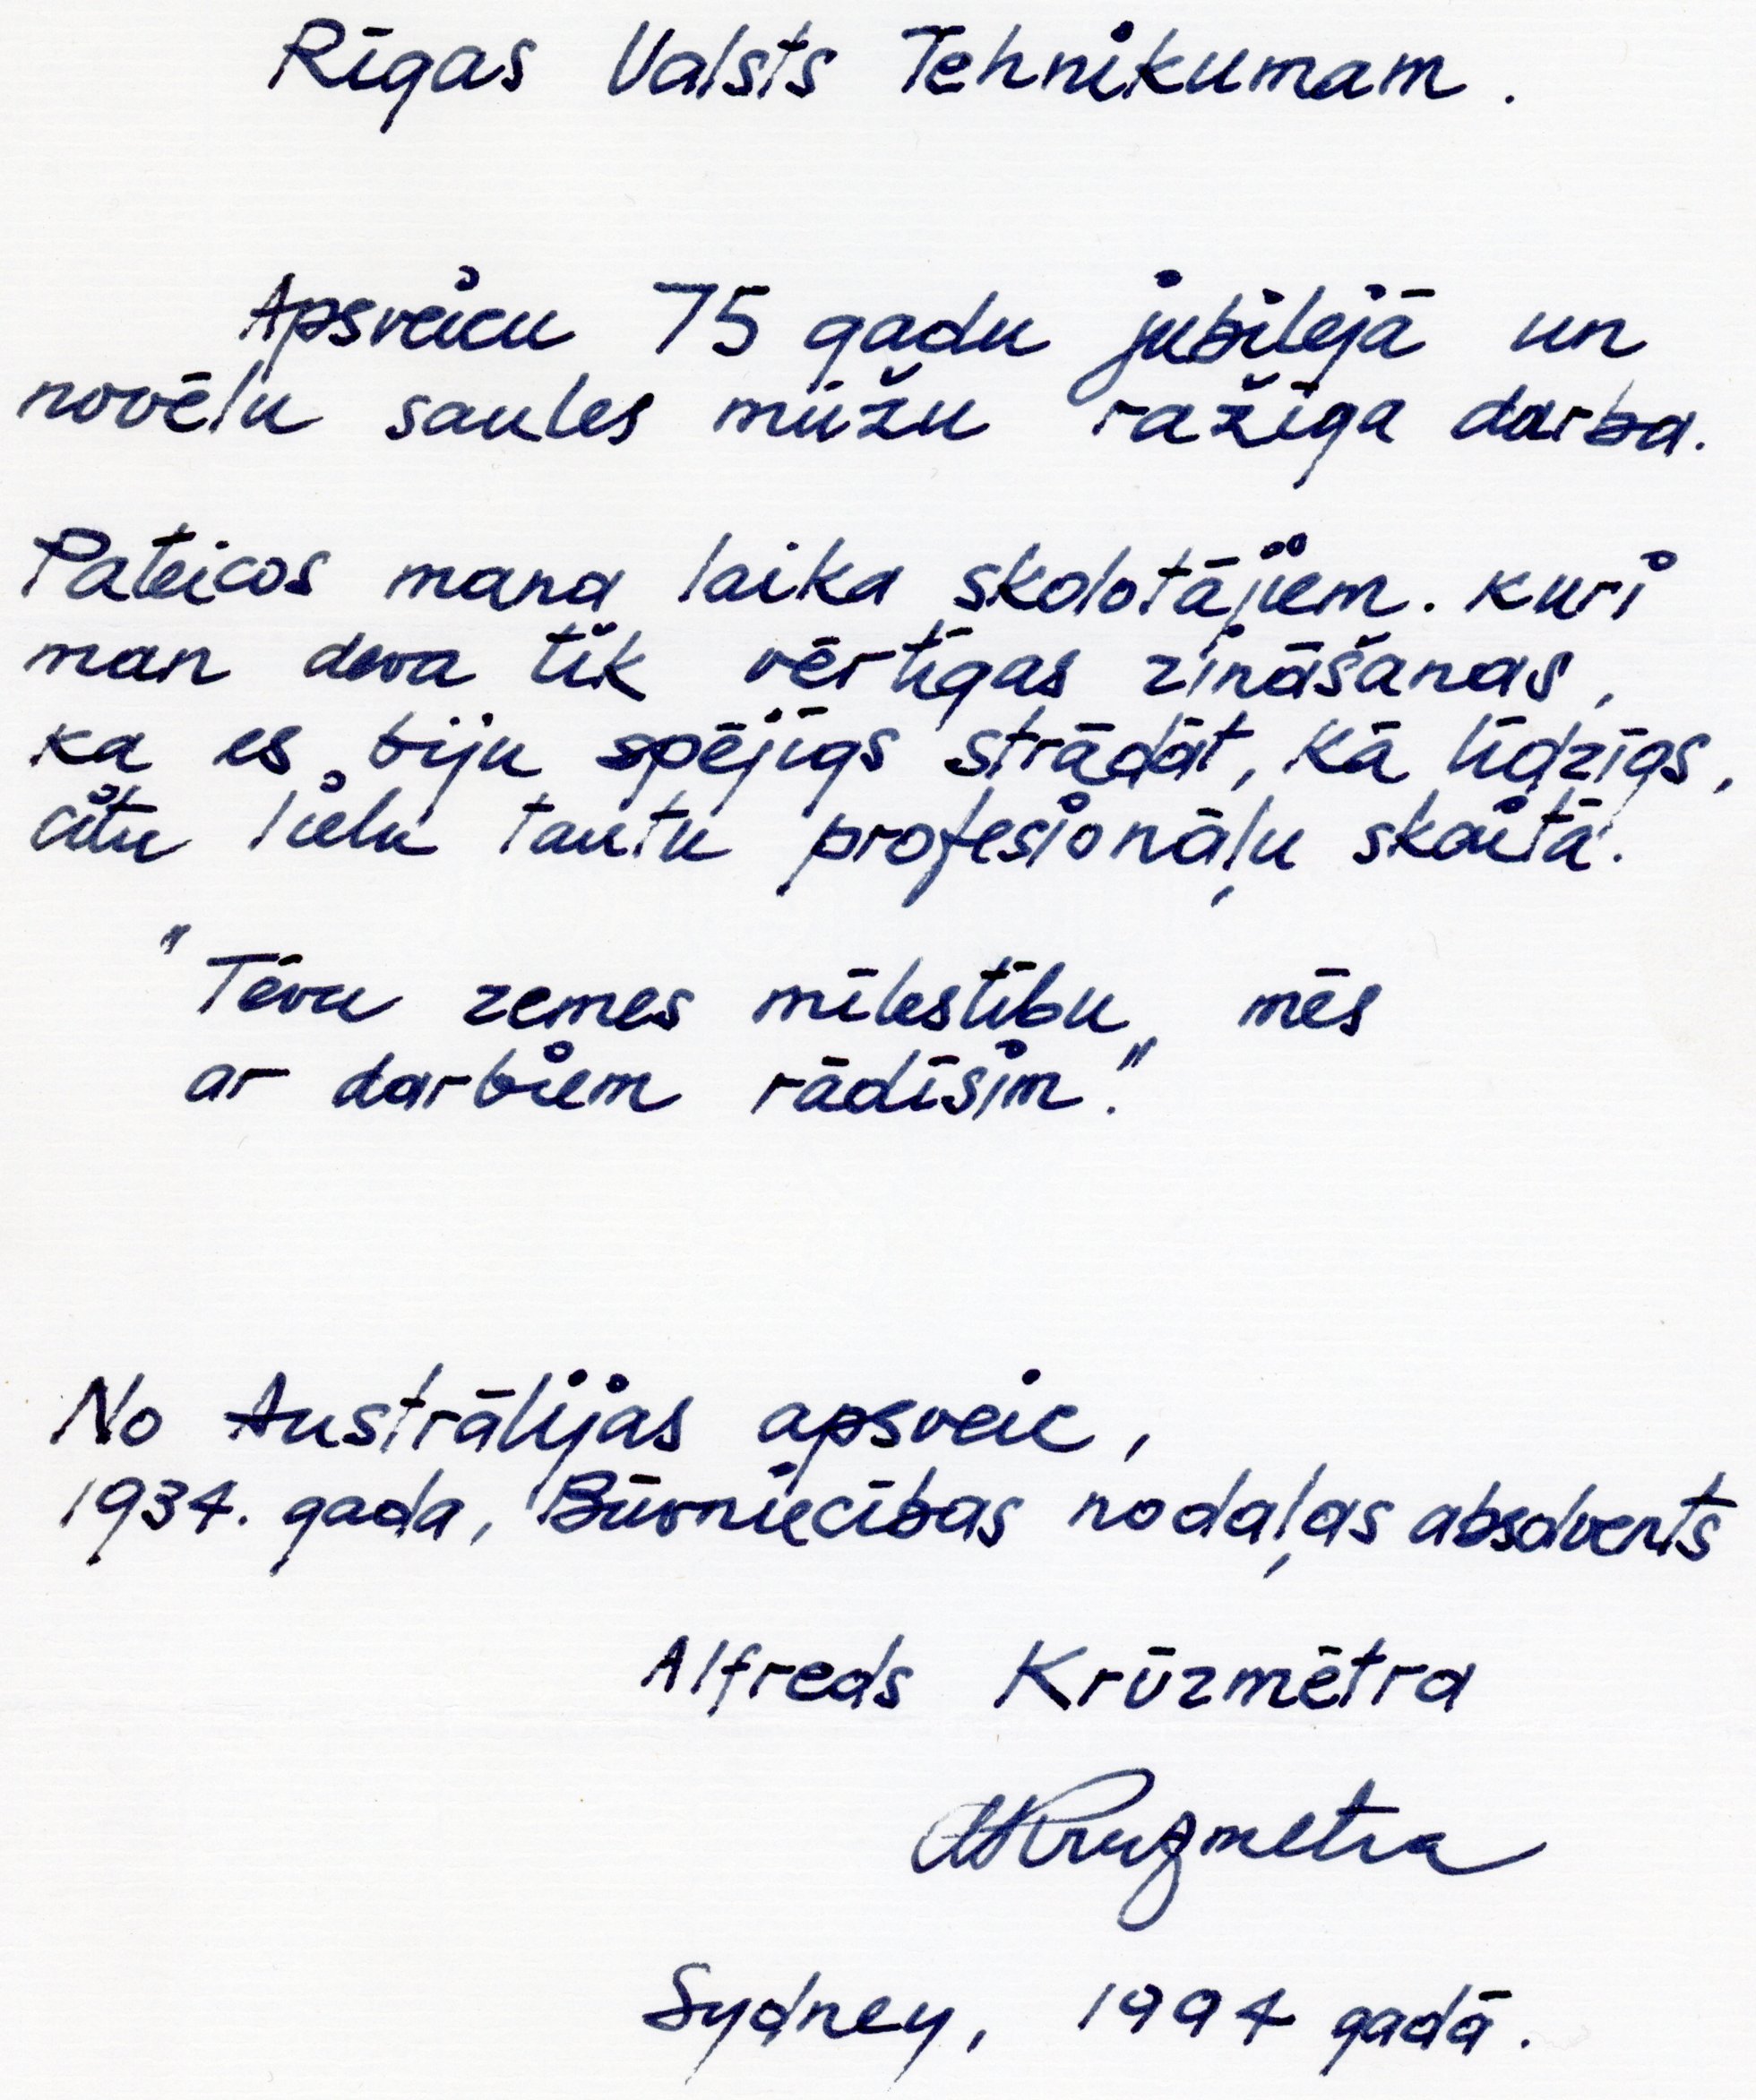 Rīgas Valsts Tehnikumam.
Apsveicu 75 gadu jubilejā un
novēlu saules mūžu ražīga darba.
Pateicos mana laika skolotājiem. kuri
man deva tik vērtīgas zināšanas,
ka es biju spējīgs strādāt, kā līdzīgs,
citu lielu tautu profesionāļu skaitā.
"Tēvu zemes mīlestību, mēs
ar darbiem rādīsim."
No Austrālijas apsveic,
1934. gada, Būvniecības nodaļas absolvents
Alfreds Krūzmētra
AKruzmetra
Sydney, 1994 gadā.